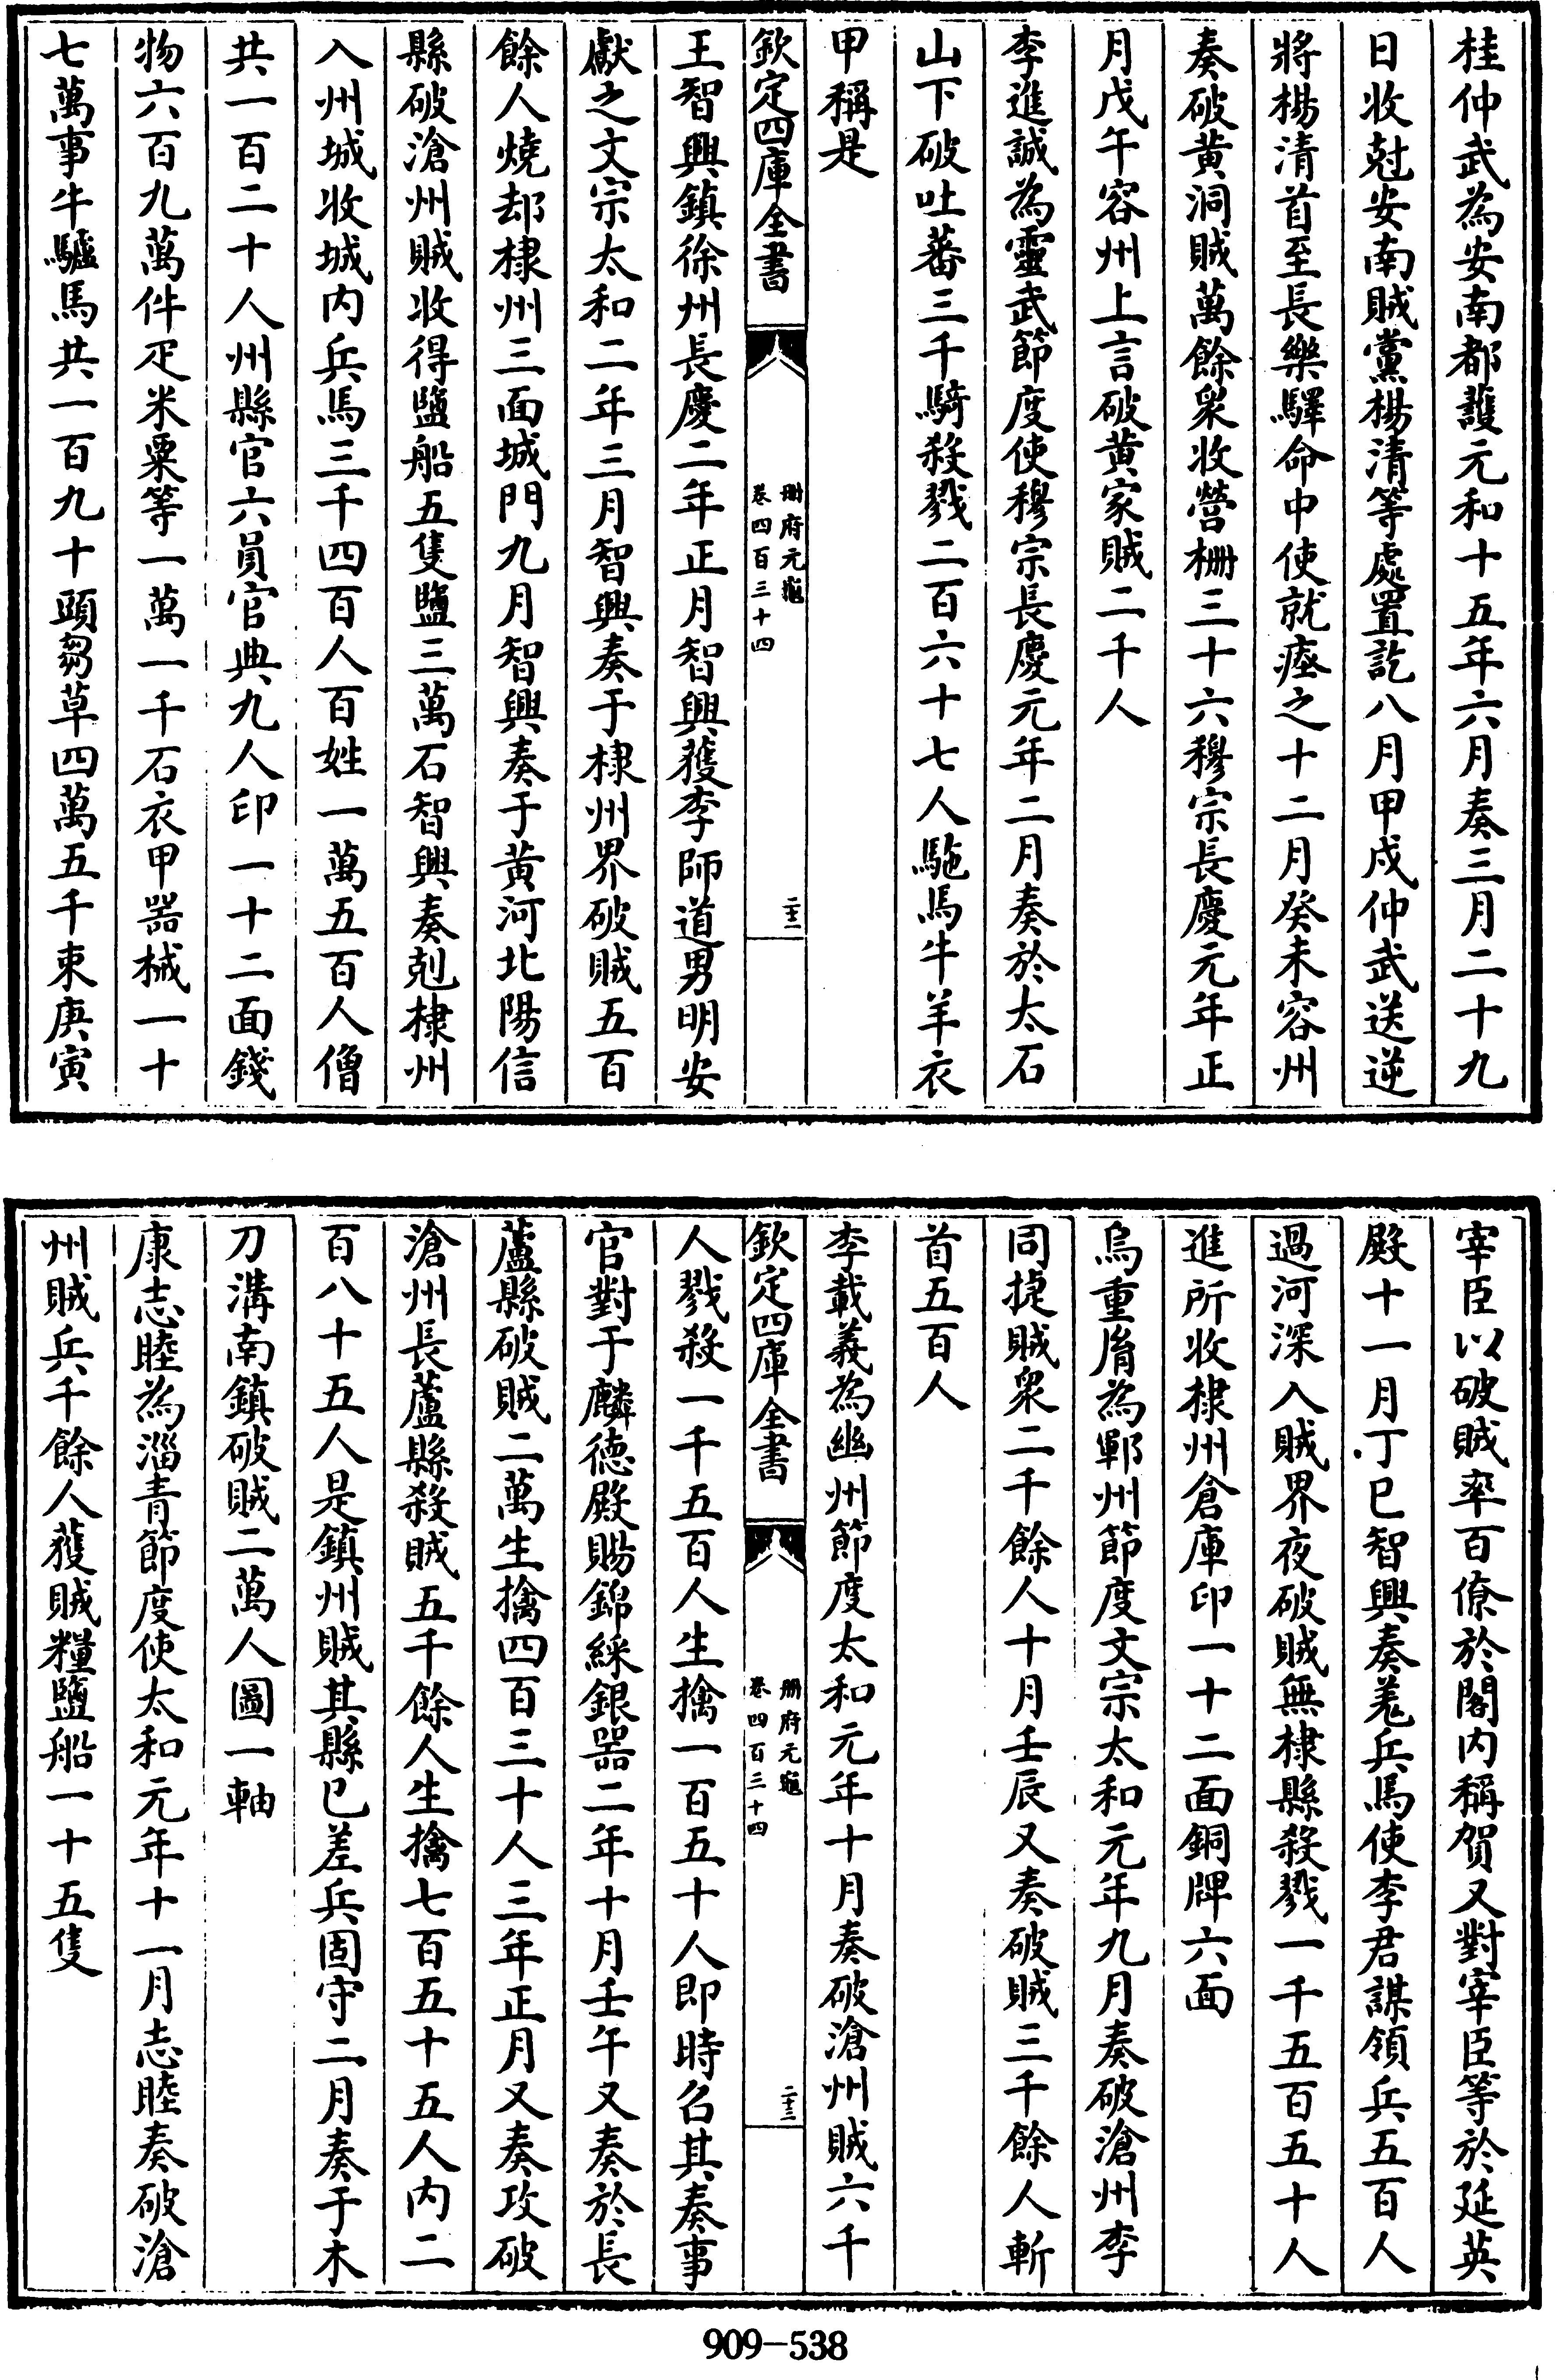 桂仲武為安南都護元和十五年六月奏三月二十九
日收尅安南賊黨楊清等處置訖八月甲戌仲武送逆
將楊清首至長樂驛命中使就瘞之十二月癸未容州
奏破黃洞賊萬餘衆收營柵三十六穆宗長慶元年正
月戊午容州上言破黃家賊二千人
李進誠為靈武節度使穆宗長慶元年二月奏於太石
山下破吐蕃三千騎殺戮二百六十七人駞馬牛羊衣
甲稱是
欽定四庫全書
冊府元龜
卷四百三十四
二十二
王智興鎮徐州長慶二年正月智興獲李師道男明安
獻之文宗太和二年三月智興奏于棣州界破賊五百
餘人燒却棣州三面城門九月智興奏于黃河北陽信
縣破滄州賊收得鹽船五隻鹽三萬石智興奏剋棣州
入州城收城内兵馬三千四百人百姓一萬五百人僧
共一百二十人州縣官六員官典九人印一十二面錢
物六百九萬件疋米粟等一萬一千石衣甲器械一十
七萬事牛驢馬共一百九十頭芻草四萬五千束庚寅
宰臣以破賊率百僚於閣内稱賀又對宰臣等於延英
殿十一月丁巳智興奏差兵馬使李君謀領兵五百人
過河深入賊界夜破賊無棣縣殺戮一千五百五十人
進所收棣州倉庫印一十二面銅牌六面
烏重胤為鄆州節度文宗太和元年九月奏破滄州李
同捷賊衆二千餘人十月壬辰又奏破賊三千餘人斬
首五百人
李載義為幽州節度太和元年十月奏破滄州賊六千
欽定四庫全書
冊府元龜
卷四百三十四
二十三
人戮殺一千五百人生擒一百五十人即時召其奏事
官對于麟德殿賜錦綵銀器二年十月壬午又奏於長
蘆縣破賊二萬生擒四百三十人三年正月又奏攻破
滄州長蘆縣殺賊五千餘人生擒七百五十五人内二
百八十五人是鎮州賊其縣已差兵固守二月奏于木
刀溝南鎮破賊二萬人圖一軸
康志睦為淄青節度使太和元年十一月志睦奏破滄
州賊兵千餘人獲賊糧鹽船一十五隻
909-538